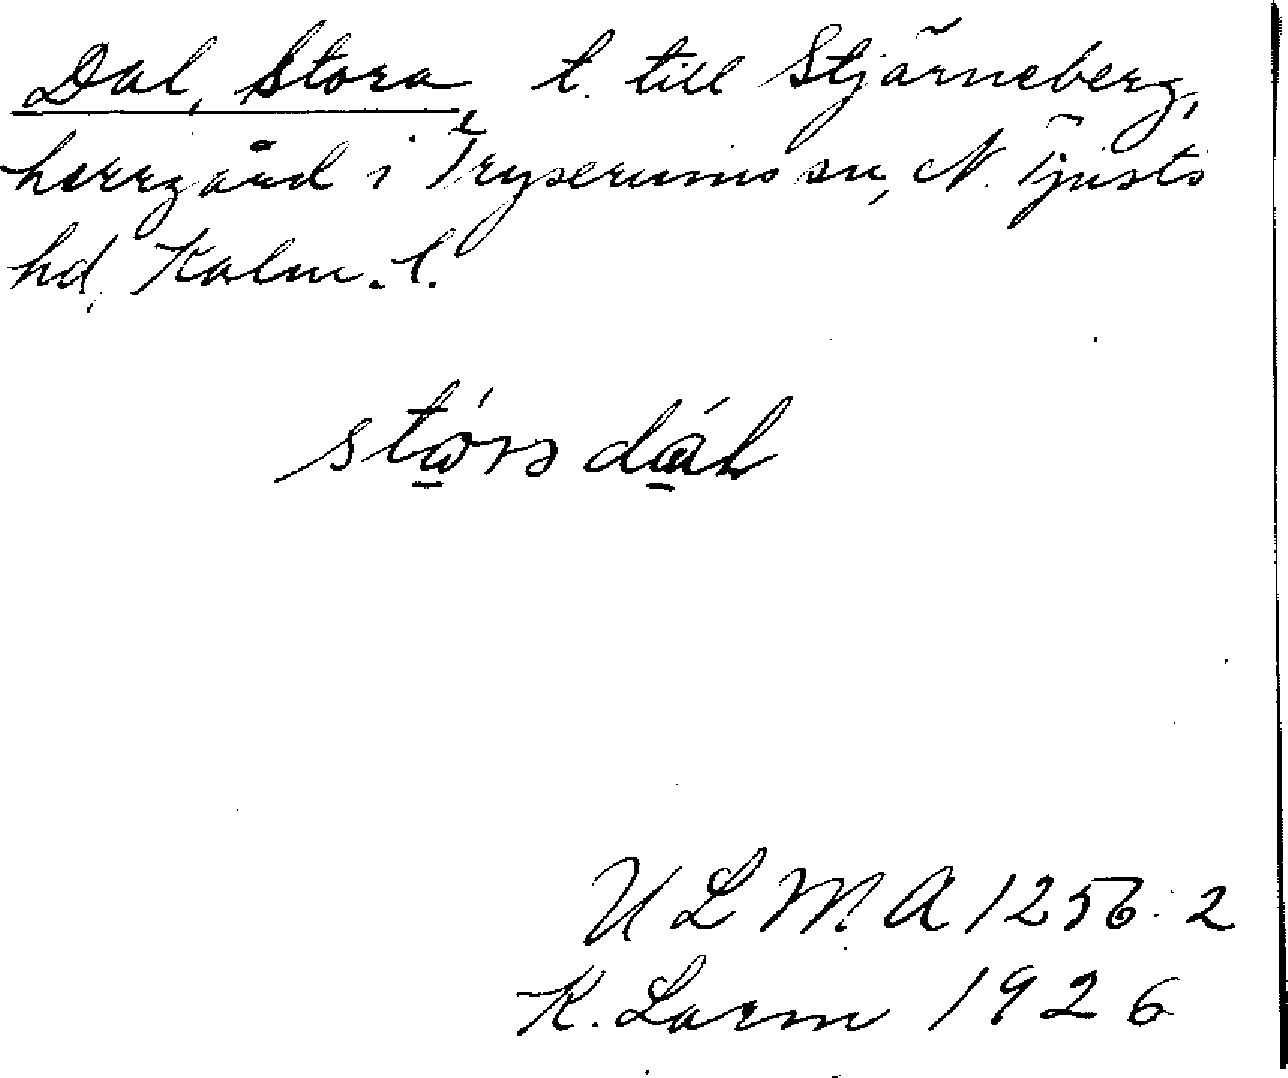 Dal, Stora, t. till Stjärneberg,
herrgård i Tryserums sn, N. Tjusts
hd, Kalm. l.
stórs dál
ULMA 1256:2
K. Larm 1926